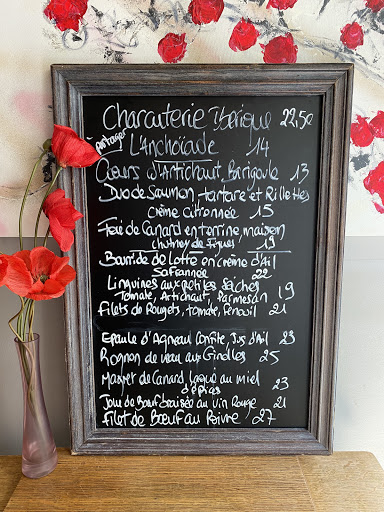 Charcuterie Ibérique 22,50
à partager
L'Anchoïade 14
Cœurs d'Artichaut, Barigoule 13
Duo de Saumon tartare et Rillettes
crème citronnée 15
Foie de Canard en terrine, maison
chutney de Figues 19
Bourride de Lotte en crème d'Ail
Safrannée 22
Linguines aux Petites Seiches
Tomate, Artichaut, Parmesan 19
Filets de Rougets, tomate, Fenouil 21
Epaule d'Agneau Confite, Jus d'Ail 23
Rognon de veau aux Girolles 25
Magret de Canard laqué au miel
d'épices 23
Joue de Bœuf braisée au Vin Rouge 21
Filet de Bœuf au Poivre 27